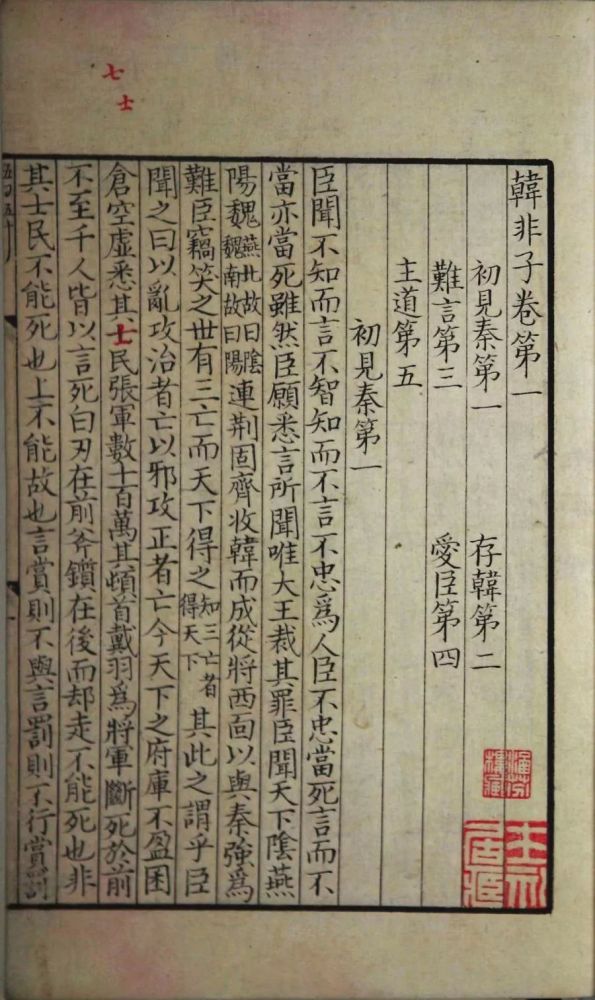 七
士
韓非子卷第一
初見秦第一 存韓第二
難言第三 愛臣第四
主道第五
初見秦第一
臣聞不知而言不智知而不言不忠爲人臣不忠當死言而不
當亦當死雖然臣願悉言所聞唯大王裁其罪臣聞天下陰燕
陽魏燕北故曰陰魏南故曰陽連荆固齊收韓而成從將西面以與秦強爲
難臣竊笑之世有三亡而天下得之知三亡者得天下其此之謂乎臣
聞之曰以亂攻治者亡以邪攻正者亡今天下之府庫不盈囷
倉空虛悉其士民張軍數十百萬其頓首戴羽爲將軍斷死於前
不至千人皆以言死白刃在前斧鑕在後而却走不能死也非
其士民不能死也上不能故也言賞則不與言罰則不行賞罰
涵芬樓藏